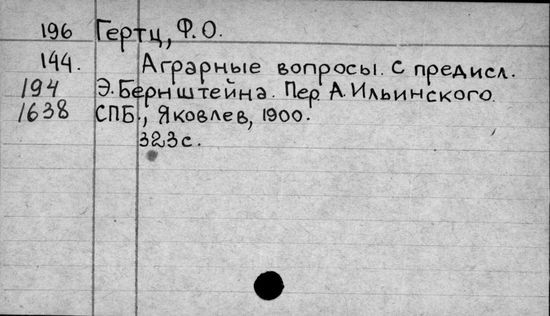 196 Гертц, Ф. О.
144. Аграрные вопросы. С предисл.
194 Э. Бернштейна. Пер. А. Ильинского.
1638 СПБ., Яковлев, 1900.
323 с.